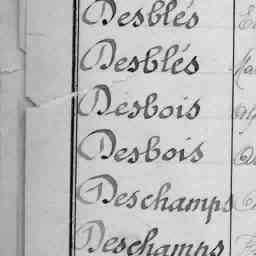 Desblés
Desblés
Desbois
Desbois
Deschamps
Deschamps